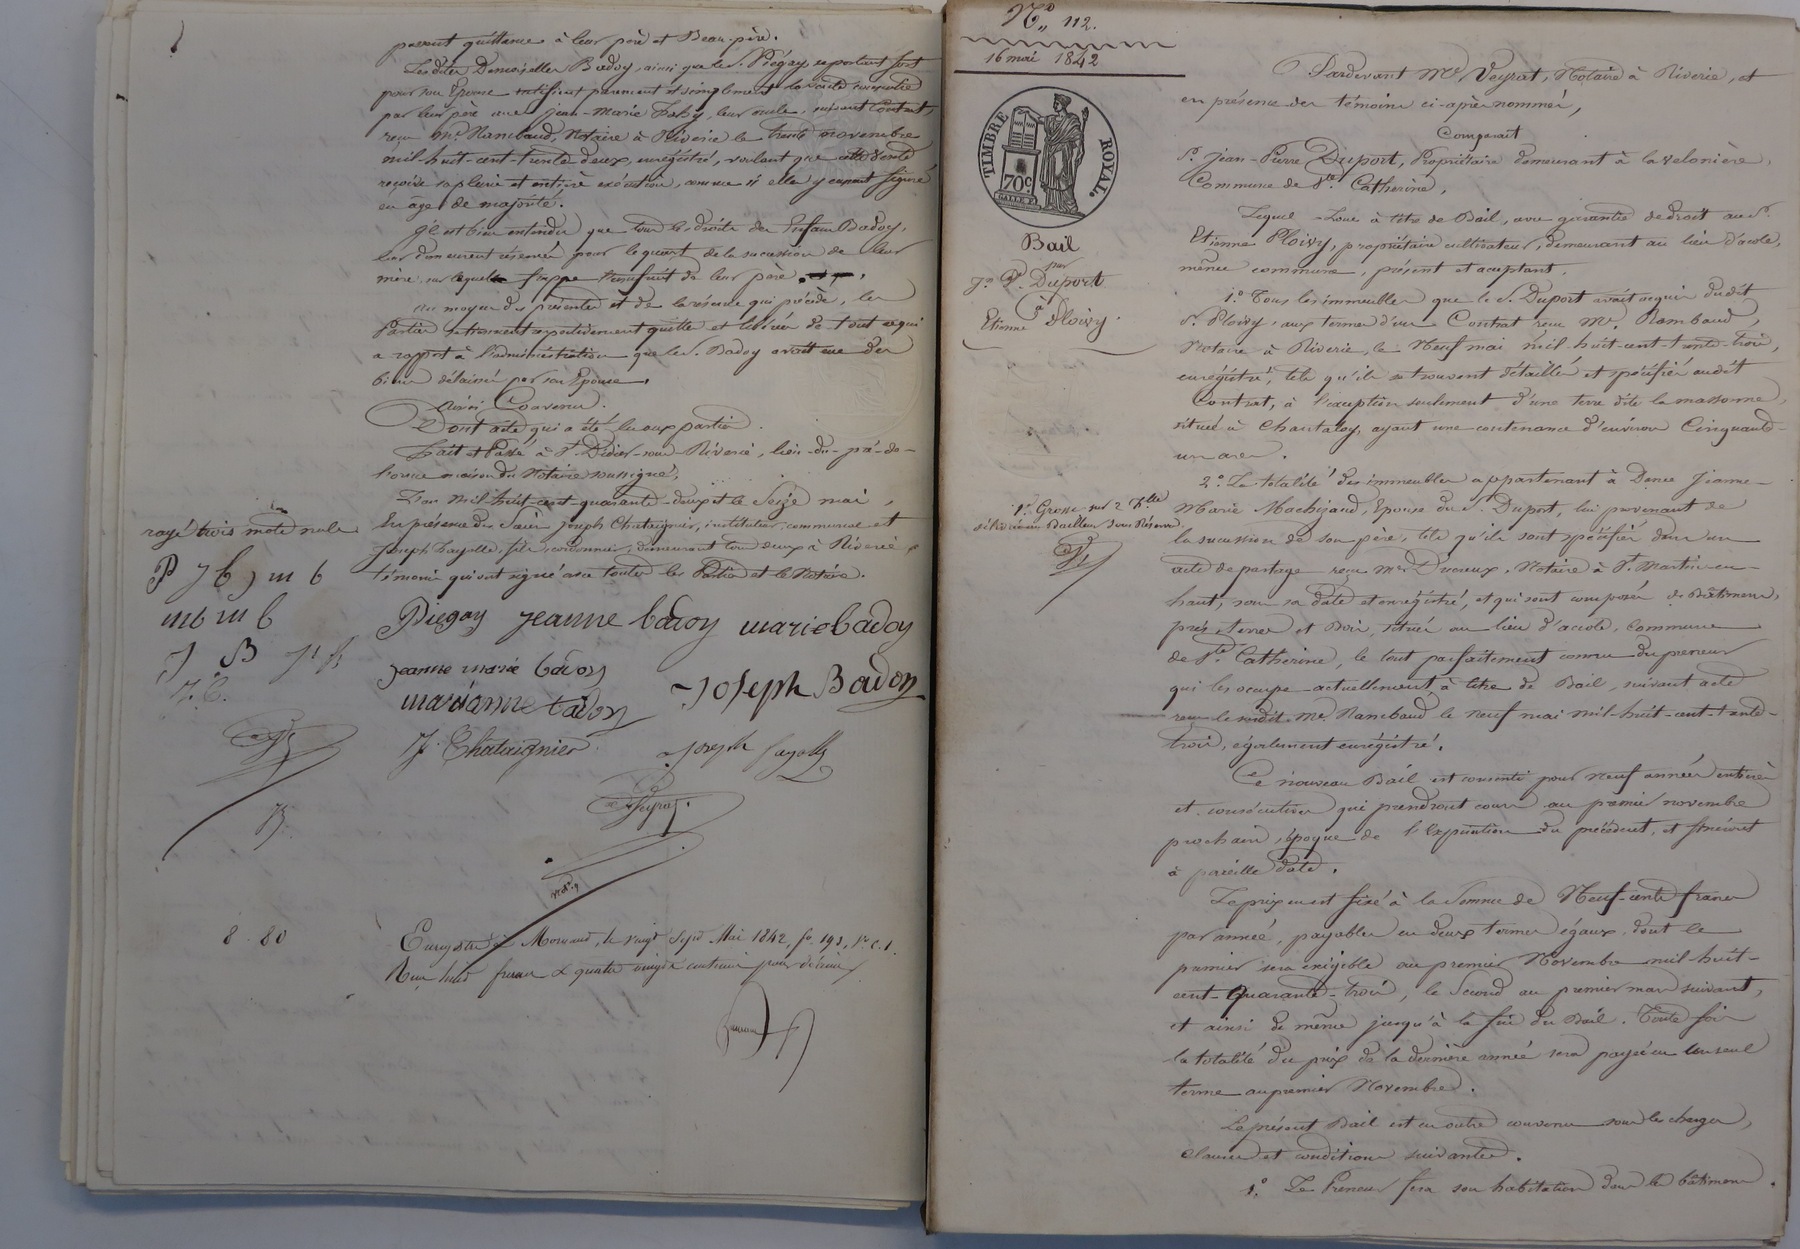 passent quittance à leur père et Beau-père.
Lesdites Demoiselles Badoy, ainsi que le s. Piégay, se portant fort
pour son Epouse ratifient purement et simplement la vente consentie
par leur père au s. jean-Marie leur oncle, suivant Contrat,
reçu Me. Rambaud, Notaire à Riverie le trente novembre
mil-huit-cent-trente deux, enregistré, voulant que cette Vente
reçoive sa pleine et entière exécution, comme si elles y eussent figuré
en âge de majorité.
Il est bien entendu que tous les droits des Enfans Badoy,
leur demeurent réservés pour le quart de la succession de leur
mère, sur lequel frappe l'usufruit de leur père
au moyen des présentes et de la réserve qui précède, les
Parties demeurent respectivement quittes et libérées de tout ce qui
a rapport à l'administration que le s. Badoy avait eue des
biens délaissés par son Epouse.
Ainsi Convenu.
Dont acte qui a été lu aux parties.
Fait et Passé à St. Didier-sous-Riverie, lieu-du-pré-de-
maison du Notaire soussigné,
L'an Mil-huit-cent quarante-deux et le Seize mai,
En présence des Sieurs Joseph Chataignier, instituteur communal et
Joseph Fayolle, fils, cordonnier, demeurant tous deux à Riverie,
témoins qui ont signé avec toutes les Parties et le Notaire.
rayé trois mots nuls
P J b J m b
m b m b
J B
J. C.
Piegay jeanne badoy marie badoy
jeanne marie badoy
marianne badoy Joseph Badoy
J. Chataignier Joseph fayolle
Veyrat
8. 80
Enregistré à Mornant, le vingt Sept Mai 1842, fo. 193, Vo. c. 1.
Reçu huit francs & quatre vingts centimes pour décime
No. 112.
16 mai 1842
TIMBRE ROYAL.
70c.
Bail
par
Jn. Pre. Duport
à
Etienne Ploivy.
1re. Grosse sur 2 flles
délivrée au Bailleur sous Réserve
Pardevant Me. Veyrat, Notaire à Riverie, et
en présence des témoins ci-après nommés,
Comparait
Sr. Jean-Pierre Duport, Propriétaire demeurant à la velonière,
Commune de Ste. Catherine,
Lequel Loue à titre de Bail, avec garantie de droit au Sr.
Etienne Ploivy, propriétaire cultivateur, demeurant au lieu d'acole,
même commune, présent et acceptant.
1.o Tous les immeubles que le S. Duport avait acquis dudit
S. Ploivy, aux termes d'un Contrat reçu Me. Rambaud,
Notaire à Riverie, le Neuf mai mil-huit-cent-trente-trois,
enregistré, tels qu'ils se trouvent détaillés et spécifiés audit
Contrat, à l'exception seulement d'une terre dite la massonne,
située à Chantaloy, ayant une contenance d'environ Cinquante-
un ares.
2.o La totalité des immeubles appartenant à Dame Jeanne-
Marie Machizaud, Epouse du S. Duport, lui provenant de
la succession de son père, tels qu'ils sont spécifiés dans un
acte de partage reçu Me. Ducreux, Notaire à St. Martin-en-
haut, sous sa date et enregistré, et qui sont composés de Bâtimens,
prés, terres et Bois, situés au lieu d'accole, Commune
de Ste. Catherine, le tout parfaitement connu du preneur
qui les occupe actuellement à titre de Bail, suivant acte
reçu le susdit Me. Rambaud le neuf mai mil-huit-cent-trente-
trois, également enregistré.
Ce nouveau Bail est consenti pour Neuf années entières
et consécutives qui prendront cours au premier novembre
prochain, époque de l'expiration du précédent, et finiront
à pareille date.
Le prix en est fixé à la Somme de Neuf-cents francs
par année, payables en deux termes égaux, dont le
premier sera exigible au premier Novembre mil-huit-
cent-quarante-trois, le Second au premier mars suivant,
et ainsi de même jusqu'à la fin du Bail. Toute fois
la totalité du prix de la dernière année sera payée en un seul
terme au premier Novembre.
Le présent Bail est en outre convenu sous les charges,
clauses et conditions suivantes.
1.o Le Preneur fera son habitation dans les bâtimens